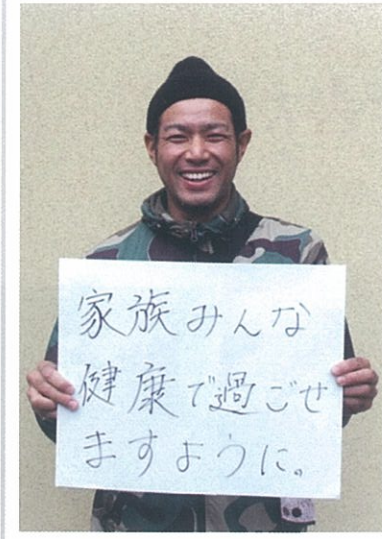 家族みんな
健康で過ごせ
ますように。